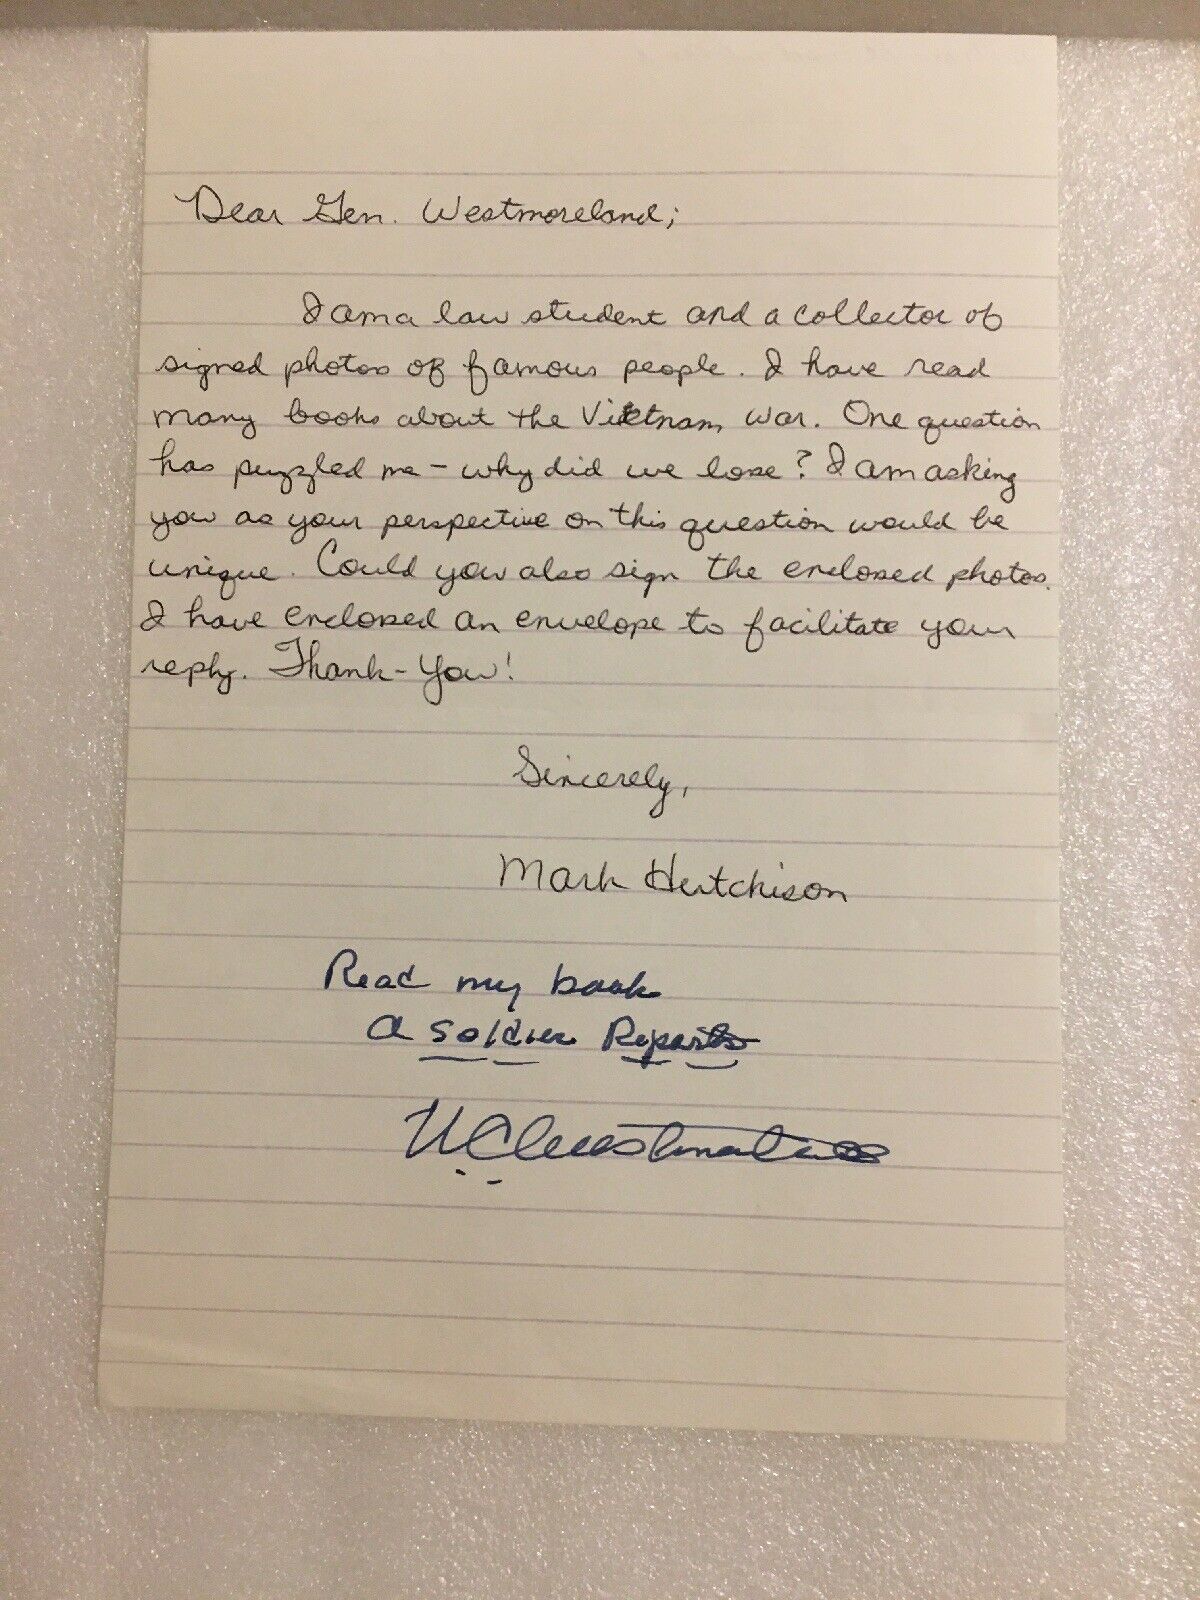 Dear Gen. Westmoreland;
I am a law student and a collector of
signed photos of famous people. I have read
many books about the Vietnam War. One question
has puzzled me - why did we lose? I am asking
you as your perspective on this question would be
unique. Could you also sign the enclosed photos.
I have enclosed an envelope to facilitate your
reply. Thank-You!
Sincerely,
Mark Hutchison
Read my book
A Soldier Reports
W C Westmoreland